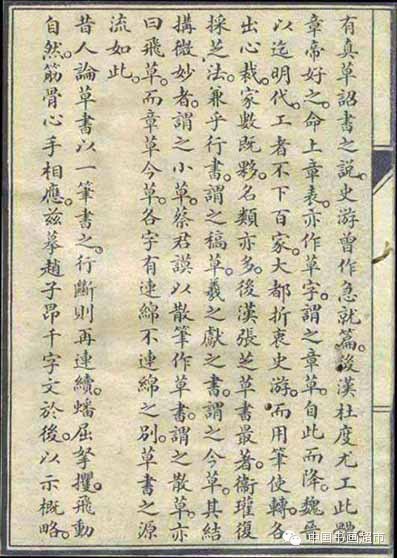 有真草詔書之說。史游曾作急就篇。後漢杜度尤工此體。
章帝好之。命上章表。亦作草字。謂之章草。自此而降。魏晉
以迄明代。工者不下百家。大都折衷史游。而用筆使轉。各
出心裁。家數既夥。名類亦多。後漢張芝草書最著。衞瓘復
採芝法。兼乎行書。謂之稿草。羲之獻之書。謂之今草。其結
搆微妙者。謂之小草。蔡君謨以散筆作草書。謂之散草。亦
曰飛草。而章草今草。各字有連綿不連綿之別。草書之源
流如此。
昔人論草書以一筆書之。行斷則再連續。蟠屈拏攫。飛動
自然。筋骨心手相應。茲摹趙子昂千字文於後。以示概略。
中国书画猎市